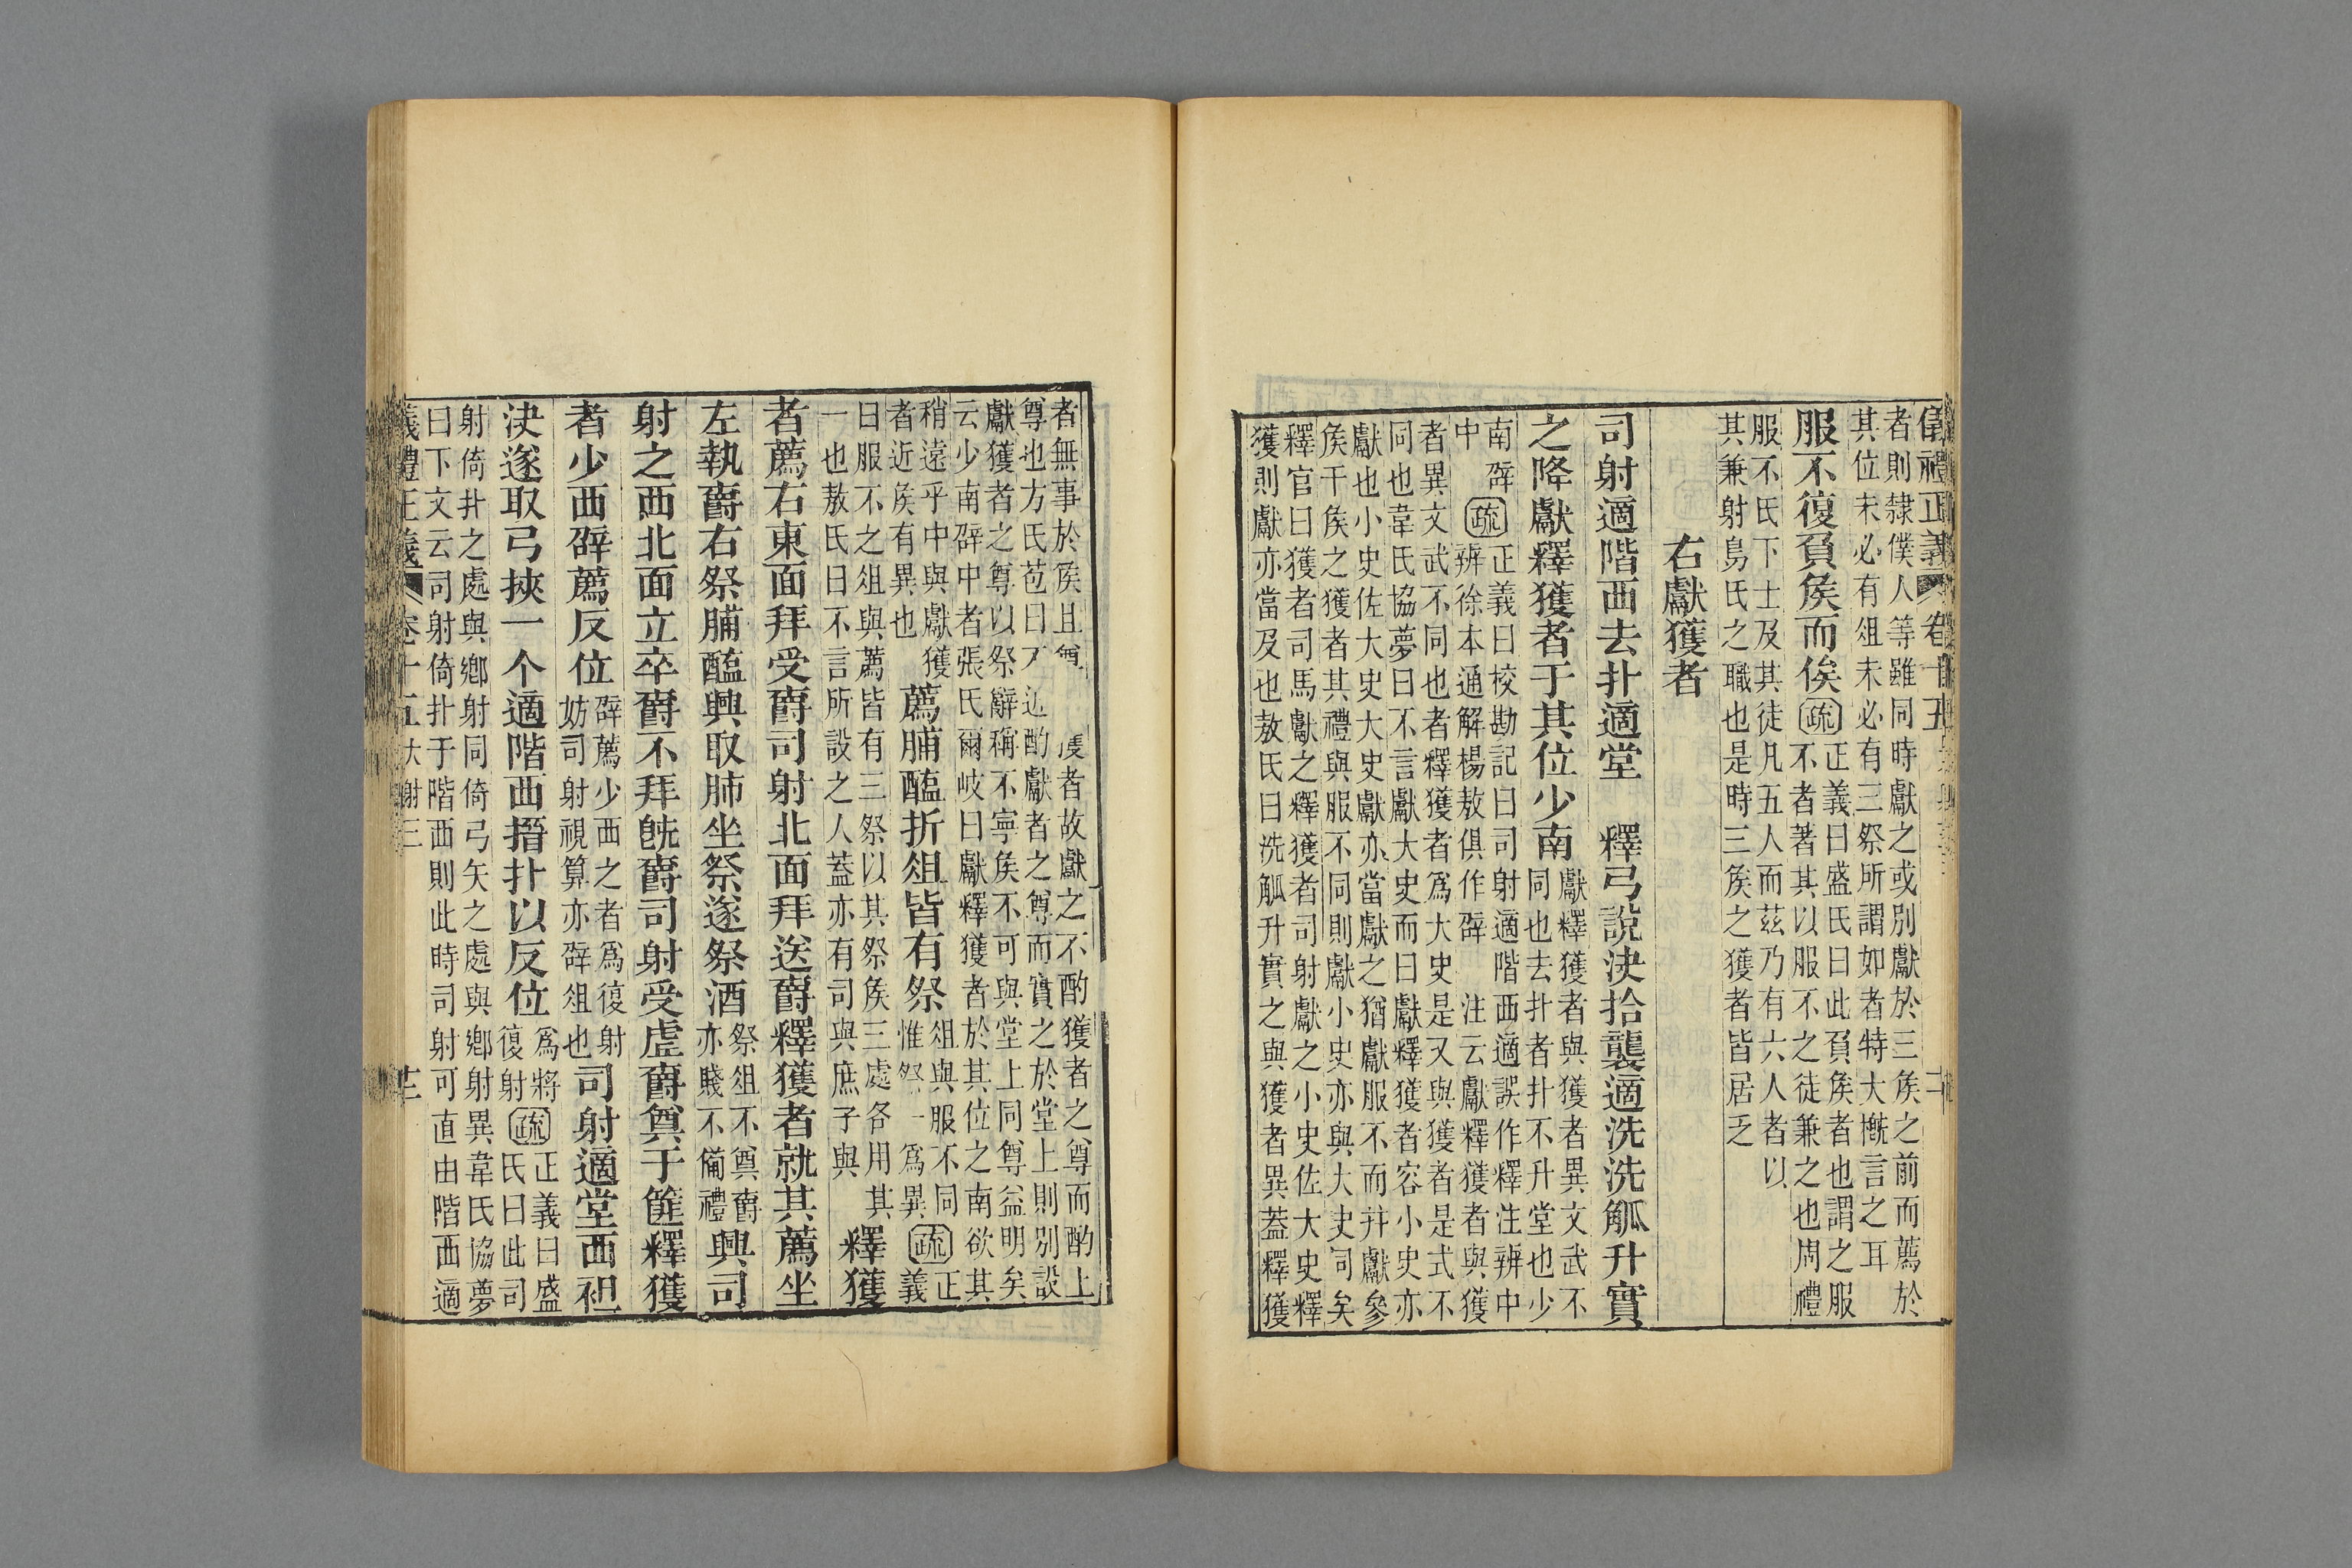 儀禮正義 卷十五
者則隸僕人等雖同時獻之或別獻於三矦之前而薦於
其位未必有俎未必有三祭所謂如者特大槪言之耳
服不復負矦而俟疏正義曰盛氏曰此負矦者也謂之服
不者著其以服不之徒兼之也周禮
服不氏下士及其徒凡五人而茲乃有六人者以
其兼射鳥氏之職也是時三矦之獲者皆居乏
右獻獲者
司射適階西去扑適堂　釋弓說決拾襲適洗洗觚升實
之降獻釋獲者于其位少南獻釋獲者與獲者異文武不
同也去扑者扑不升堂也少
南辟
中　疏正義曰校勘記曰司射適階西適誤作釋注辨中
辨徐本通解楊敖俱作辟　注云獻釋獲者與獲
者異文武不同也者釋獲者爲大史是又與獲者是式不
同也韋氏協夢曰不言獻大史而曰獻釋獲者容小史亦
獻也小史佐大史大史獻亦當獻之猶獻服不而幷獻參
矦干矦之獲者其禮與服不同則獻小史亦與大史同矣
釋官曰獲者司馬獻之釋獲者司射獻之小史佐大史釋
獲則獻亦當及也敖氏曰洗觚升實之與獲者異蓋釋獲
者無事於矦且　　　　虔者故獻之不酌獲者之尊而酌上
尊也方氏苞曰　近酌獻者之尊而實之於堂上則別設
獻獲者之尊以祭辭稱不寧矦不可與堂上同尊益明矣
云少南辟中者張氏爾岐曰獻釋獲者於其位之南欲其
稍遠乎中與獻獲
者近矦有異也　薦脯醢折俎皆有祭俎與服不同
惟祭一爲異疏正
義
曰服不之俎與薦皆有三祭以其祭矦三處各用其
一也敖氏曰不言所設之人蓋亦有司與庶子與　釋獲
者薦右東面拜受爵司射北面拜送爵釋獲者就其薦坐
左執爵右祭脯醢興取肺坐祭遂祭酒祭俎不奠爵
亦賤不備禮興司
射之西北面立卒爵不拜旣爵司射受虛爵奠于篚釋獲
者少西辟薦反位辟薦少西之者爲復射
妨司射視算亦辟俎也司射適堂西袒
決遂取弓挾一个適階西搢扑以反位爲將
復射疏正義曰盛
氏曰此司
射倚扑之處與鄉射同倚弓矢之處與鄉射異韋氏協夢
曰下文云司射倚扑于階西則此時司射可直由階西適
儀禮正義 卷十五大射三